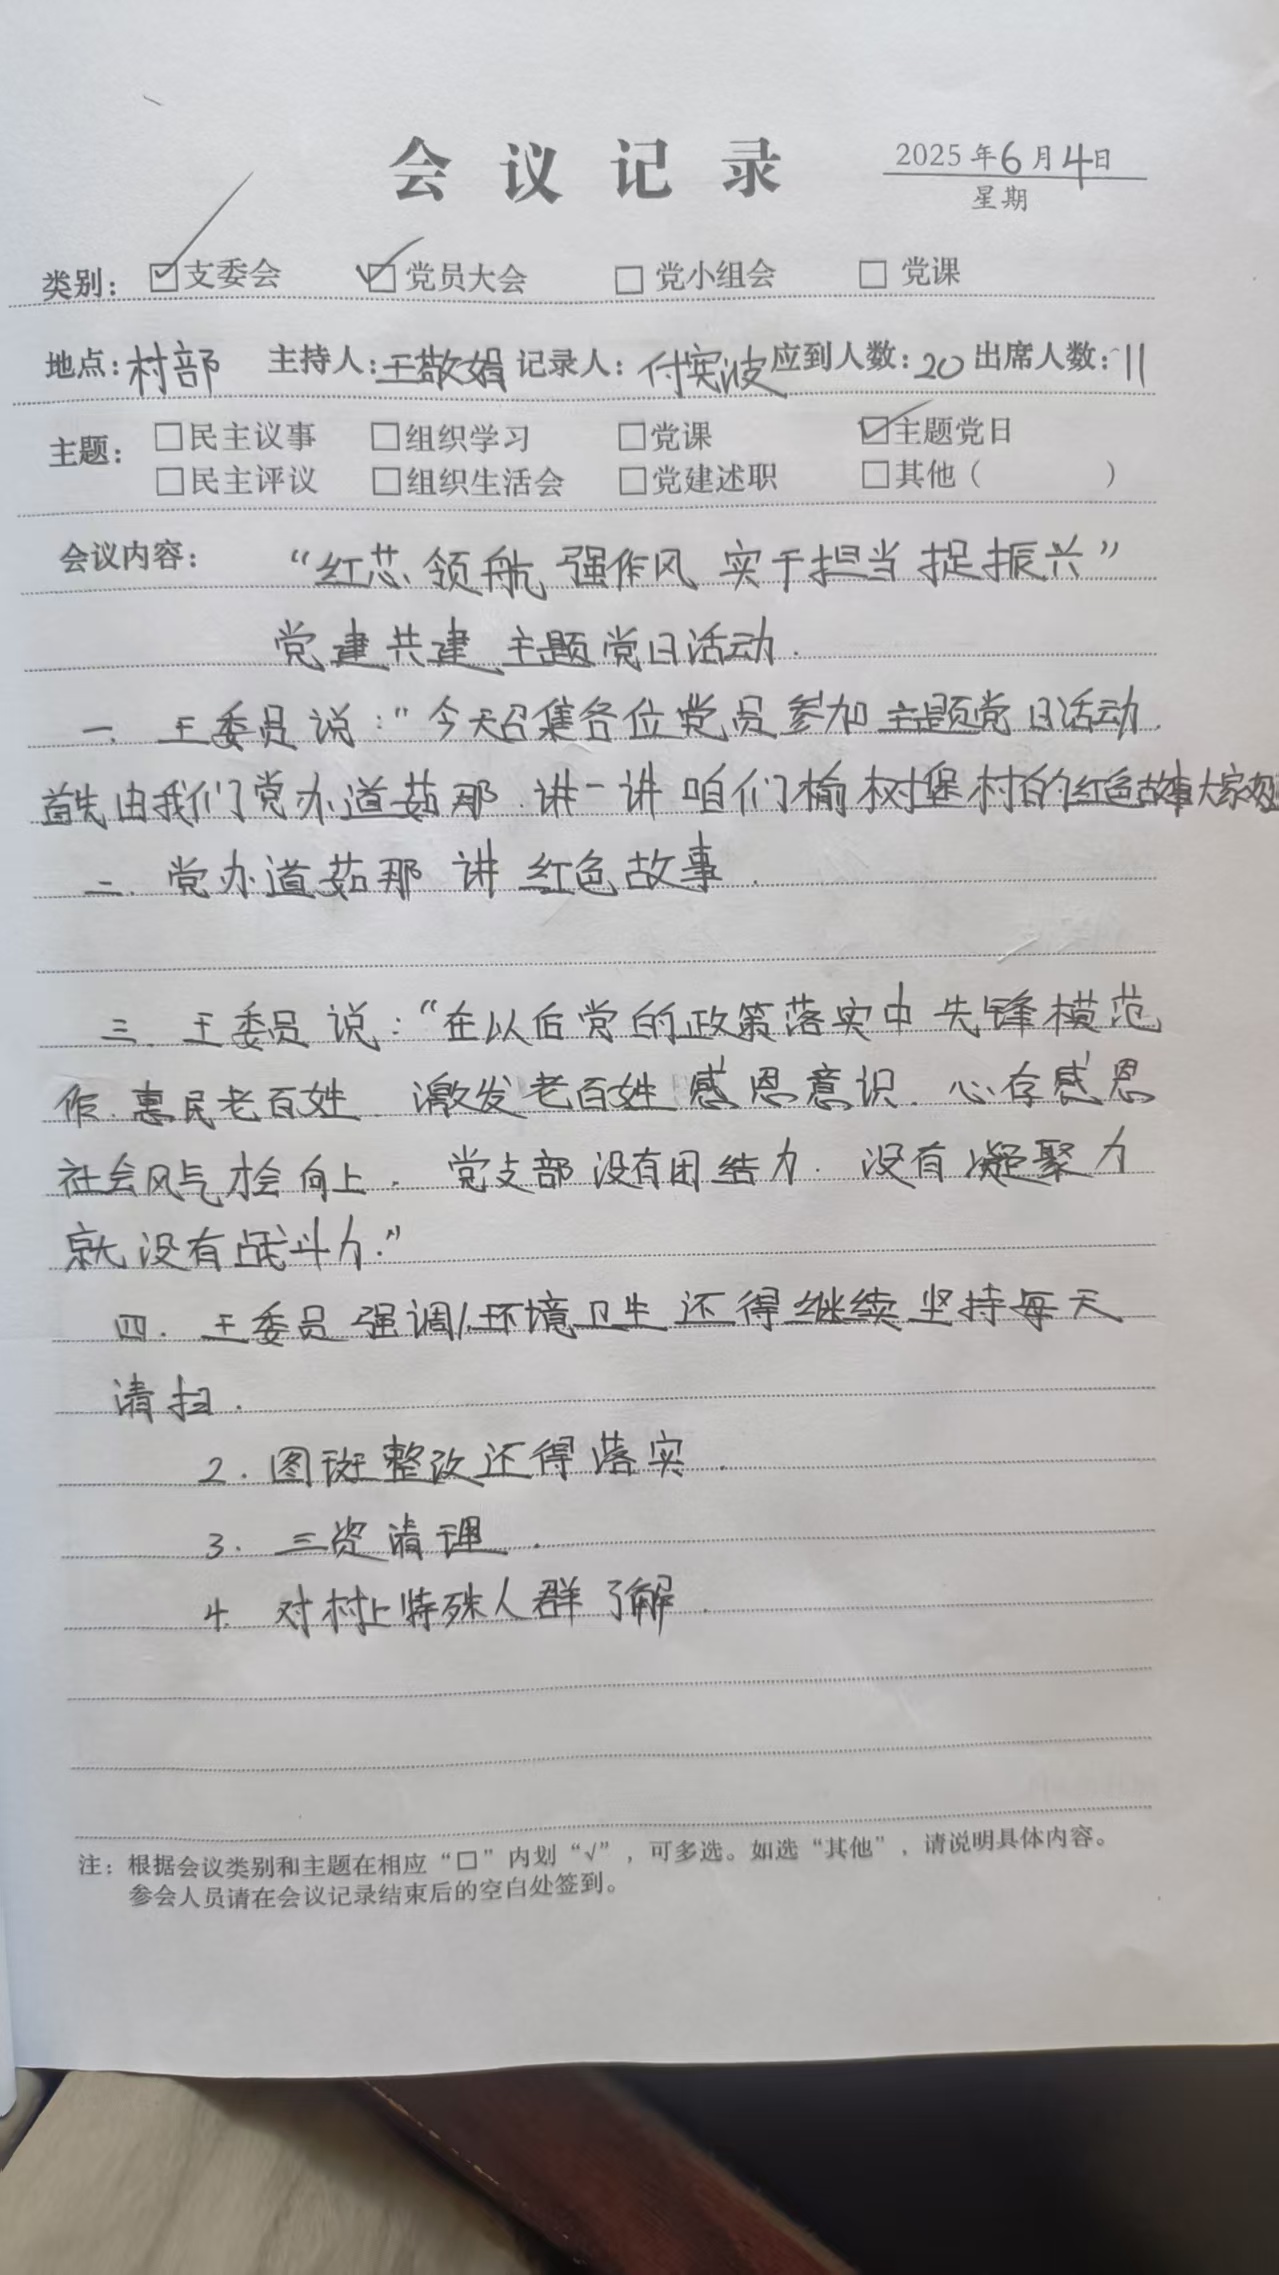 会议记录
2025年6月4日
星期
类别： ☑支委会 ☑党员大会 □党小组会 □党课
地点：村部 主持人：王敬娟 记录人：付宪波 应到人数：20 出席人数：11
主题： □民主议事 □组织学习 □党课 ☑主题党日
□民主评议 □组织生活会 □党建述职 □其他（ ）
会议内容： “红芯领航 强作风 实干担当 捉振兴”
党建共建 主题党日活动.
一. 王委员说：“今天召集各位党员参加主题党日活动.
首先由我们党办道茹那.讲一讲 咱们榆树堡村的红色故事大家
二. 党办道茹那 讲 红色故事.
三. 王委员说：“在以后党的政策落实中 先锋模范
作.惠民老百姓.激发老百姓感恩意识.心存感恩
社会风气才会向上. 党支部没有团结力. 没有凝聚力
就没有战斗力.”
四. 王委员强调1.环境卫生还得继续坚持每天
清扫.
2. 图斑整改还得落实.
3. 三资清理.
4. 对村上特殊人群了解.
注：根据会议类别和主题在相应“□”内划“√”，可多选。如选“其他”，请说明具体内容。
参会人员请在会议记录结束后的空白处签到。